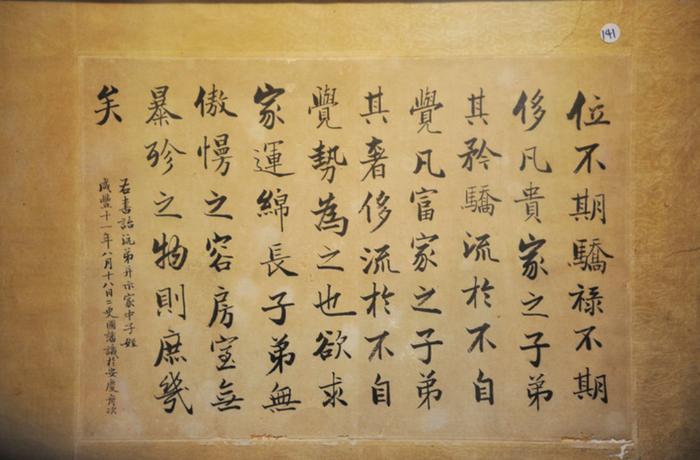 位不期驕祿不期
侈凡貴家之子弟
其矜驕流於不自
覺凡富家之子弟
其奢侈流於不自
覺勢為之也欲求
家運綿長子弟無
傲慢之容房室無
暴殄之物則庶幾
矣
右書詒沅弟并示家中子姪
咸豐十一年八月十八日二更國藩識於安慶舟次
141